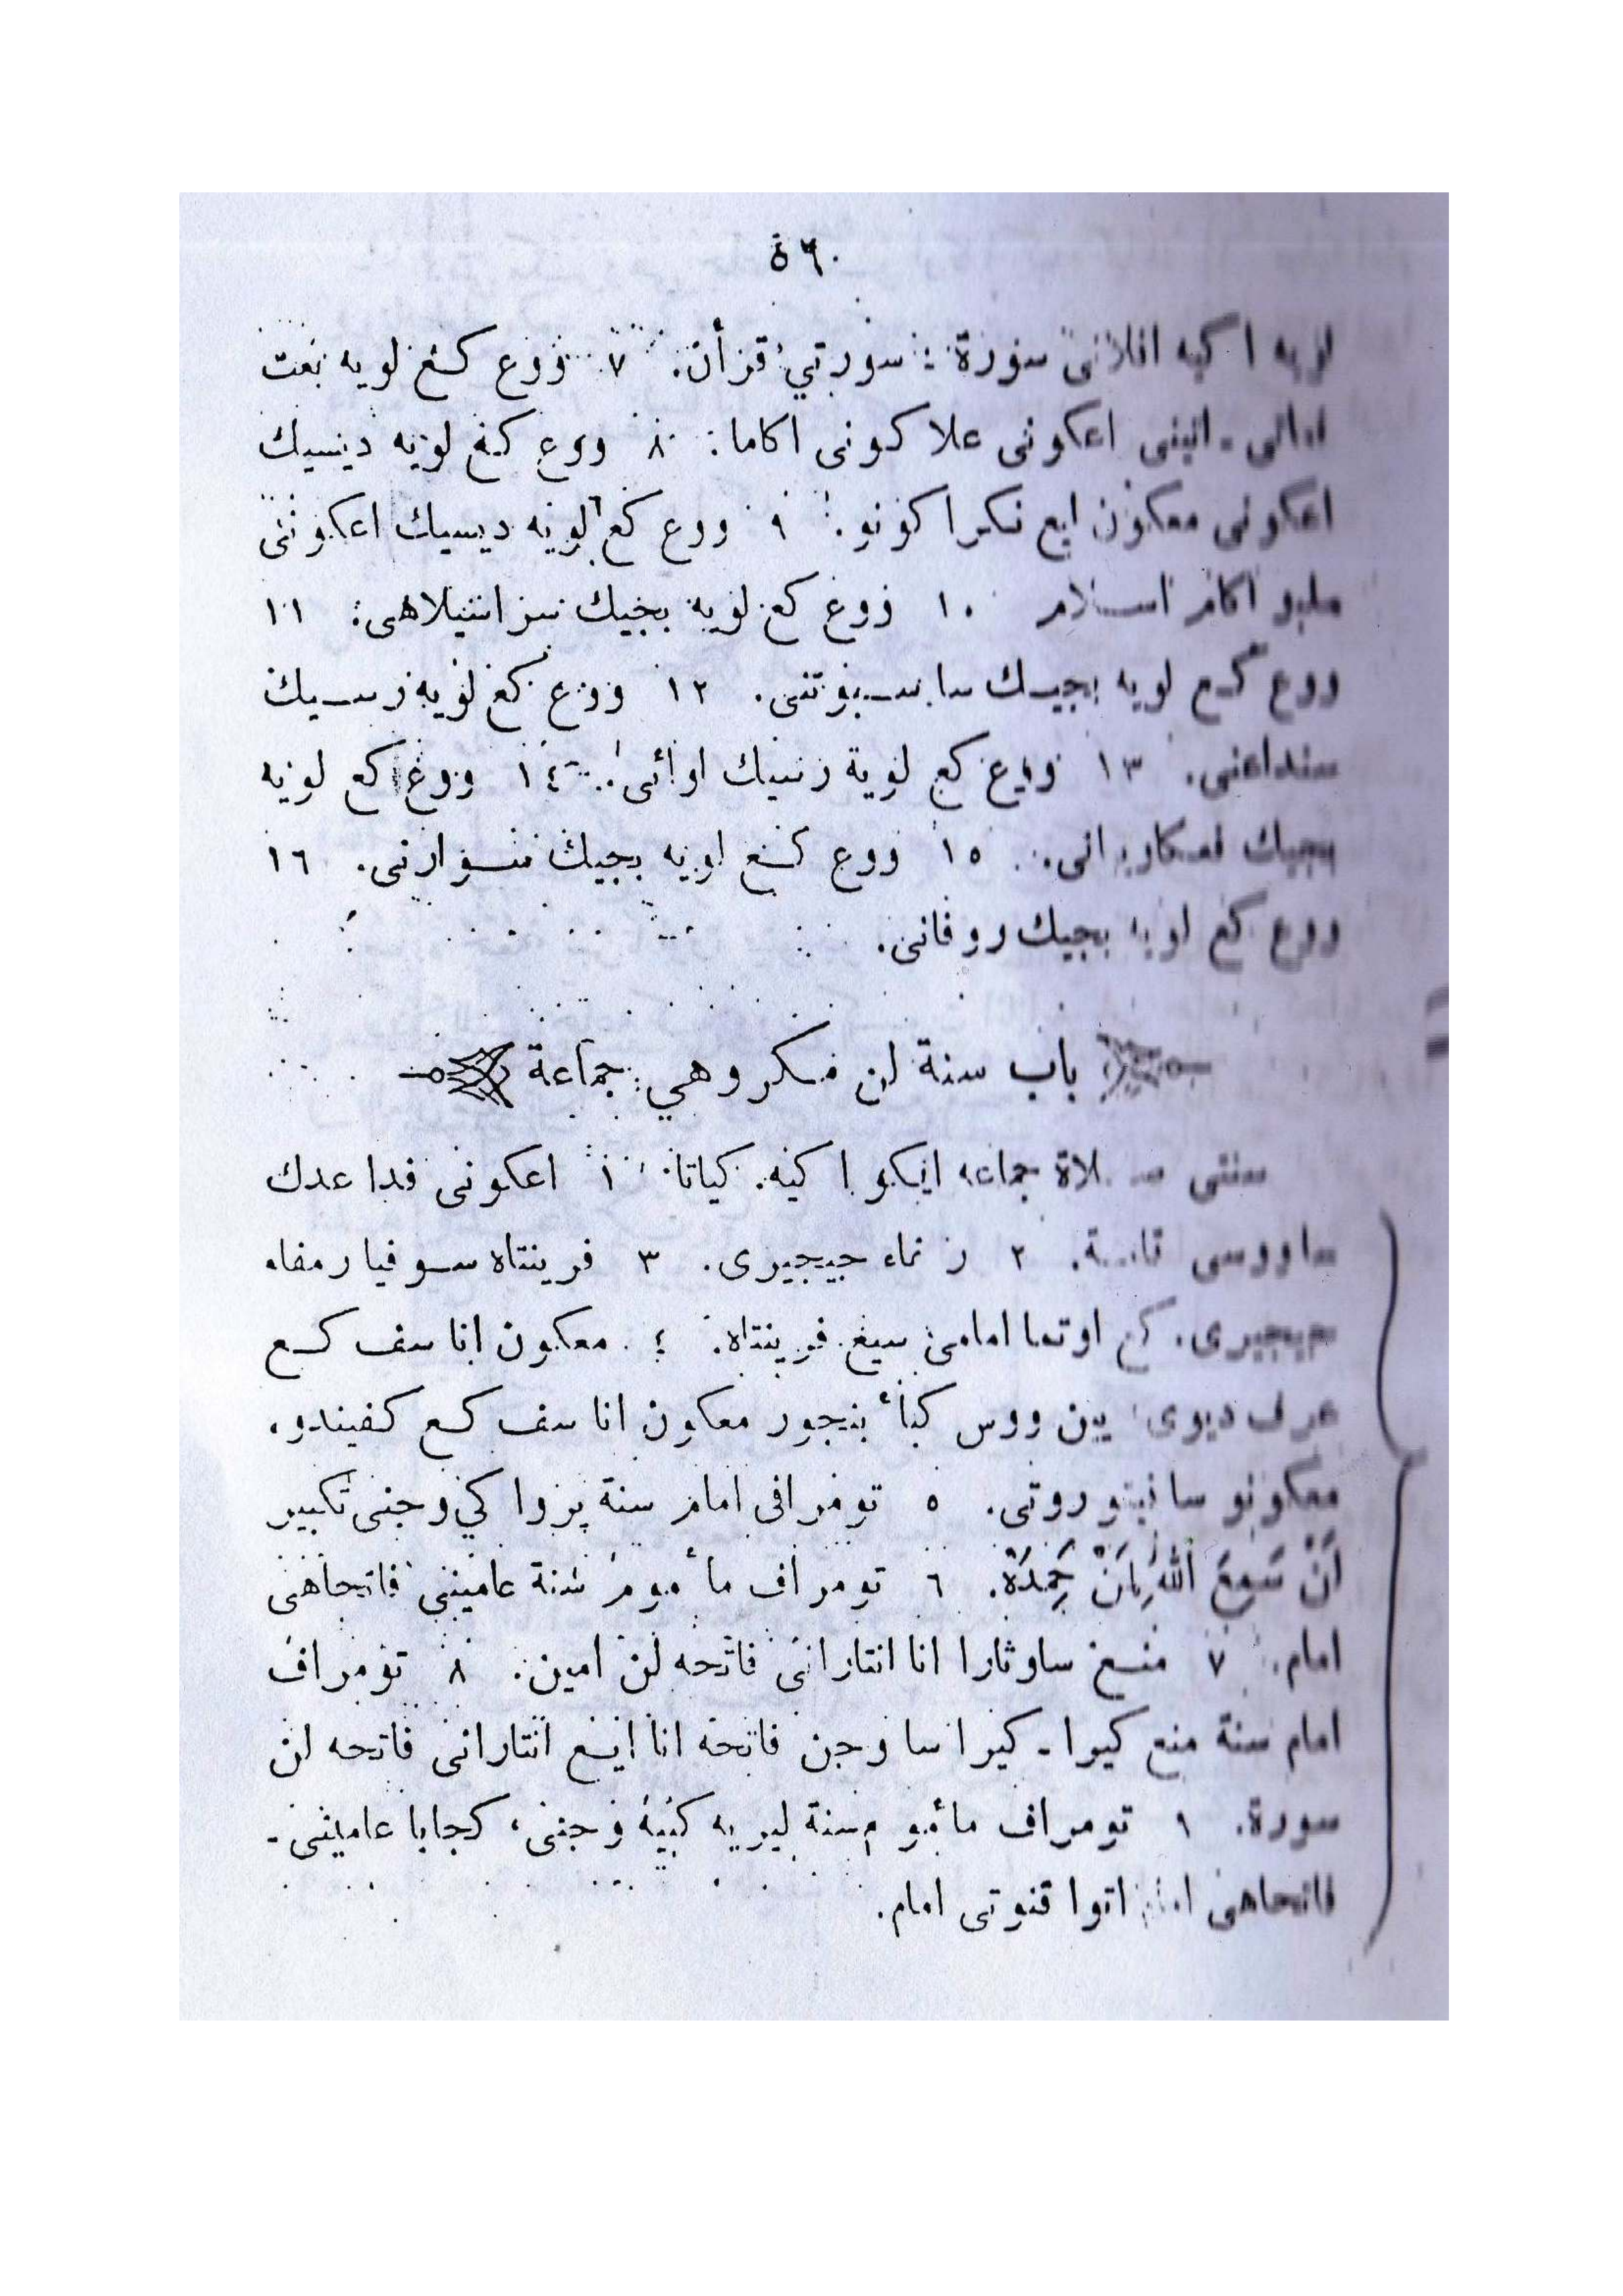 ٥٦
لويه اكيه افلانى سورة : سورتي قرأن. ٧ ووع كع لويه بعت
اعكونى علاكونى اكاما. ٨ ووع كع لويه ديسيك
اعكونى معكون ايع نكرا كونو. ٩ ووع كع لويه ديسيك اعكونى
ملبو اكام اسلام ١٠ ووع كع لويه بجيك ١١
ووع كع لويه بجيك سابسبوتنى. ١٢ ووع كع لويه رسيك
سنداعنى. ١٣ ووع كع لويه رسيك اوائى. ١٤ ووع كع لويه
بجيك فعكاويانى. ١٥ ووع كع لويه بجيك سوارنى. ١٦
ووع كع لويه بجيك روفانى.
باب سنة لن مكروهي جماعة
سنتى سلاة جماعه ايكو اكيه. كياتا ١ اعكونى فدا عدك
ساووسى قامة. ٢ جيجيرى. ٣ فرينتاه سوفيا رمفاه
جيجيرى. كع اوتما امامى سيع فرينتاه. ٤ معكون انا سف كع
عرف ديوى يين ووس كباء بنجور معكون انا سف كع كفيندو،
معكونو سانيتوروتى. ٥ تومراف امام سنة وجنى تكبير
لن سَمِعَ اللهُ لِمَنْ حَمِدَهْ. ٦ تومراف مأموم سنة عامينى فاتحاهى
امام. ٧ منع ساوتارا انا انتارانى فاتحه لن امين. ٨ تومراف
امام سنة منع كيرا - كيرا سا وجن فاتحه انا ايع انتارانى فاتحه لن
سورة. ٩ تومراف مأموم سنة ليريه كبيه وجنى، كجابا عامينى -
فاتحاهى امام اتوا قنوتى امام.